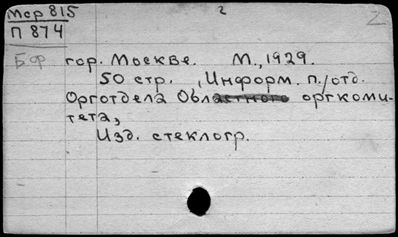 Мср 815
2
2
П 874
Бф гор. Москве. М., 1929.
50 стр. (Информ. п./отд.
Орготдела Областного оргкоми-
тета,
Изд. стеклогр.